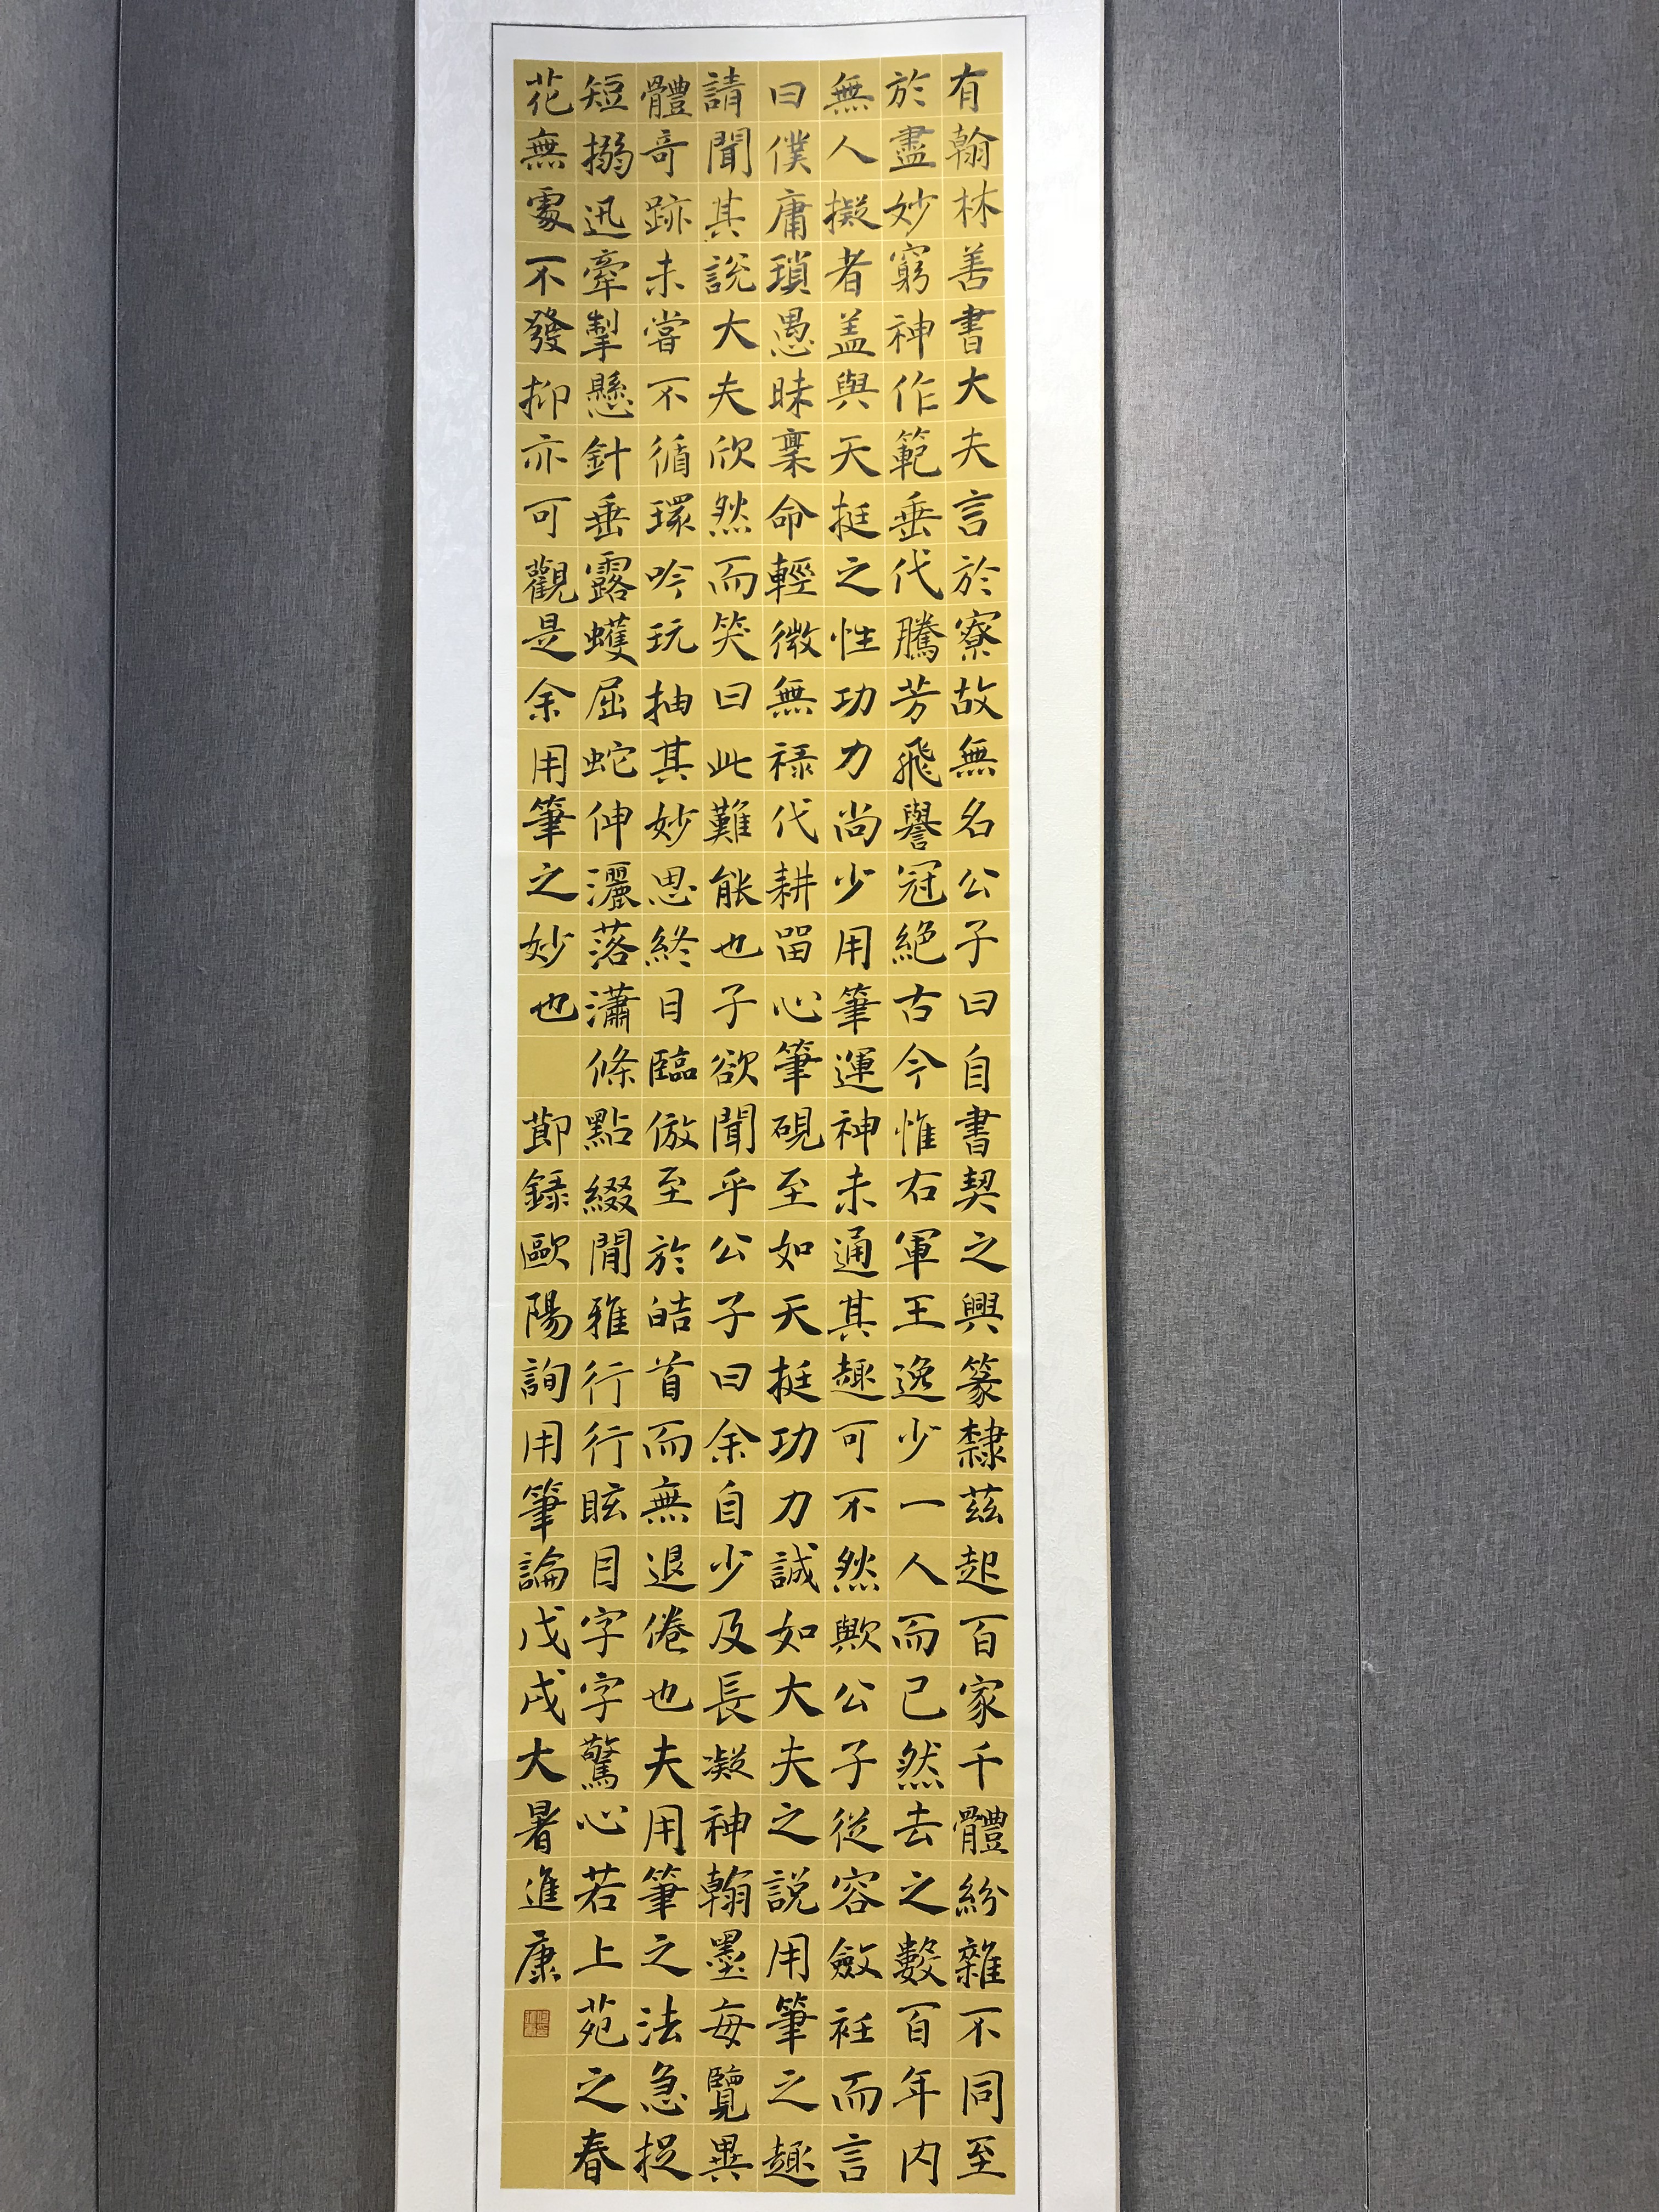 有翰林善書大夫言於寮故無名公子曰自書契之興篆隸茲起百家千體紛雜不同至
於盡妙窮神作範垂代騰芳飛譽冠絕古今惟右軍王逸少一人而已然去之數百年内
無人擬者盖與天挺之性功力尚少用筆運神未通其趣可不然歟公子從容斂衽而言
曰僕庸瑣愚昧稟命輕微無祿代耕留心筆硯至如天挺功力誠如大夫之説用筆之趣
請聞其說大夫欣然而笑曰此難能也子欲聞乎公子曰余自少及長凝神翰墨每覽異
體奇跡未嘗不循環吟玩抽其妙思終日臨倣至於皓首而無退倦也夫用筆之法急捉
短搦迅牽掣懸針垂露蠖屈蛇伸灑落瀟條點綴閒雅行行眩目字字驚心若上苑之春
花無處不發抑亦可觀是余用筆之妙也
節錄歐陽詢用筆論戊戌大暑進康